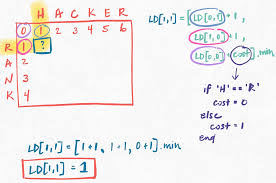 H A C K E R
0 1 2 3 4 5 6
R 1 ?
A 2
N 3
K 4
LD[1,1] = [LD[0,1] + 1,
LD[1,0] + 1,
LD[0,0] + cost].min
if 'H' == 'R'
cost = 0
else
cost = 1
end
LD[1,1] = [1+1, 1+1, 0+1].min
LD[1,1] = 1